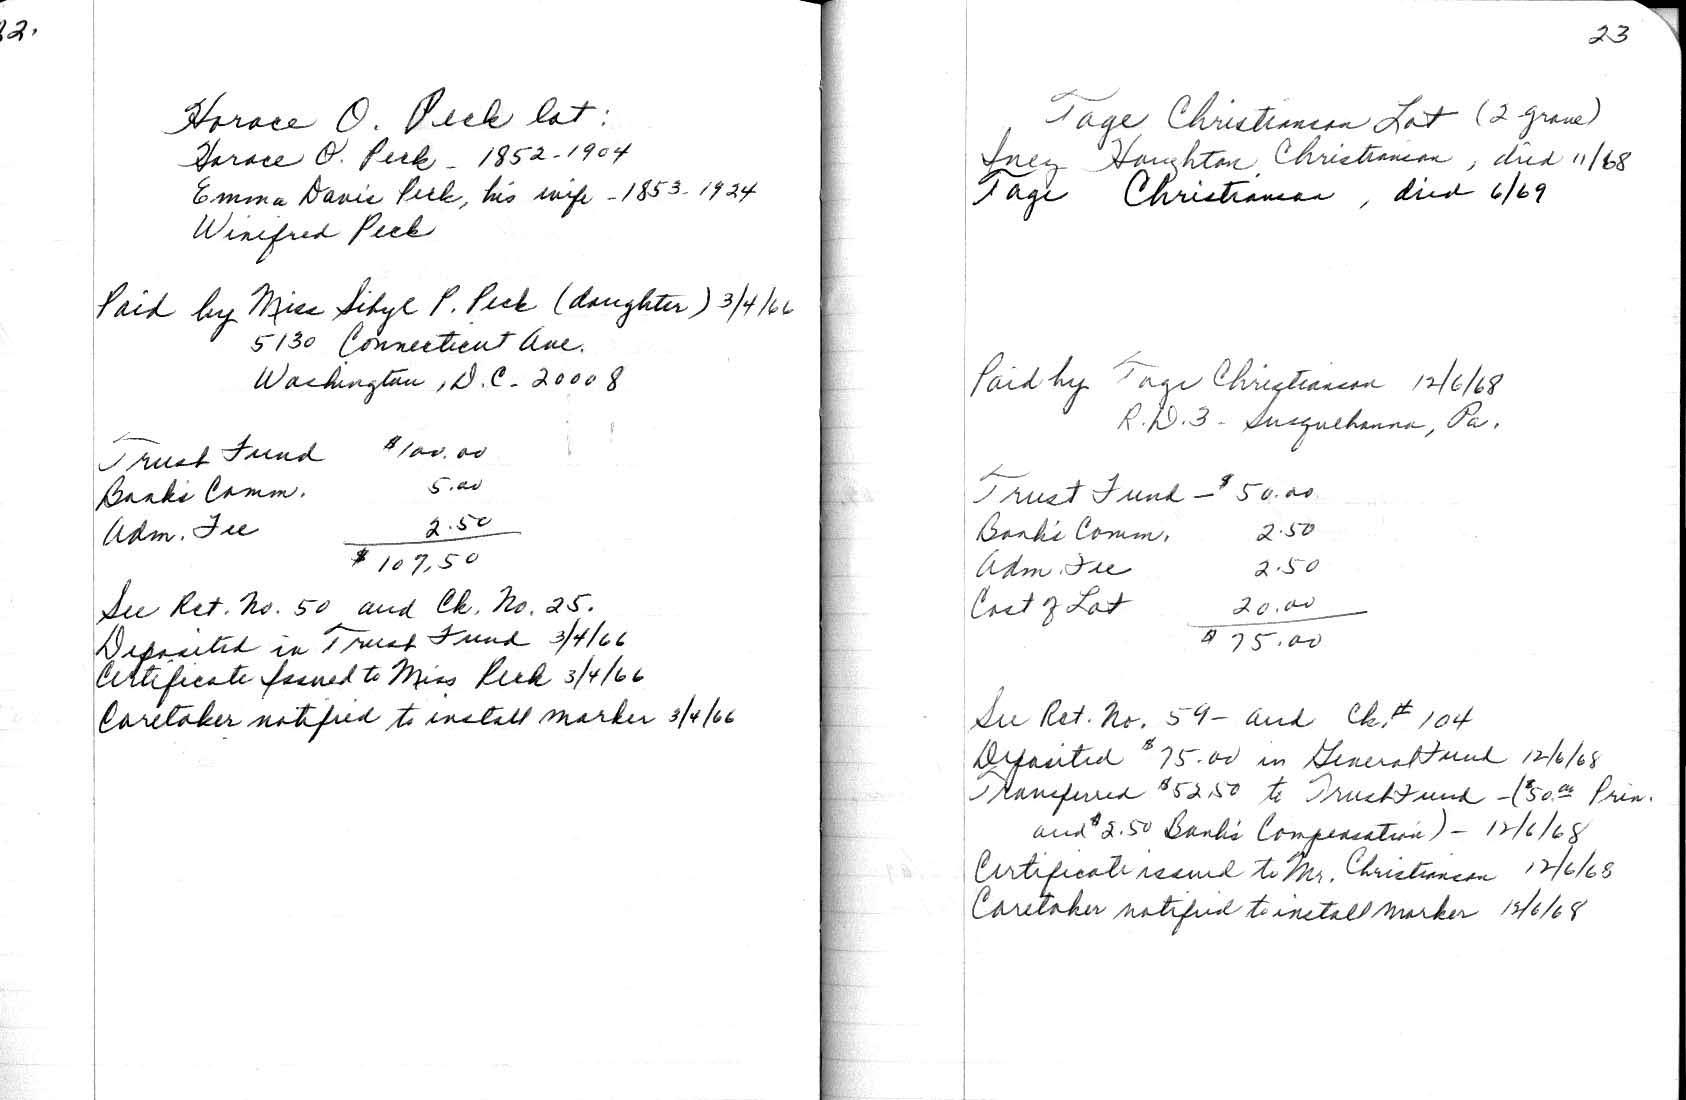 22.
Horace O. Peck lot:
Horace O. Peck - 1852-1904
Emma Davis Peck, his wife - 1853-1924
Winifred Peck
Paid by Miss Sibyl P. Peck (daughter) 3/4/66
5130 Connecticut Ave.
Washington, D.C. - 20008
Trust Fund $100.00
Bank's Comm. 5.00
Adm. Fee 2.50
$107.50
See Rct. No. 50 and Ck. No. 25.
Deposited in Trust Fund 3/4/66
Certificate Issued to Miss Peck 3/4/66
Caretaker notified to install marker 3/4/66
23
Tage Christianson Lot (2 grave)
Inez Houghton Christianson, died 11/68
Tage Christianson, died 6/69
Paid by Tage Christianson 12/6/68
R.D.3 - Susquehanna, Pa.
Trust Fund - $50.00
Bank's Comm. 2.50
Adm. Fee 2.50
Cost of Lot 20.00
$75.00
See Rct. No. 59 - and Ck. # 104
Deposited $75.00 in General Fund 12/6/68
Transferred $52.50 to Trust Fund - ($50.00 Prin.
and $2.50 Bank's Compensation) - 12/6/68
Certificate issued to Mr. Christianson 12/6/68
Caretaker notified to install marker 12/6/68